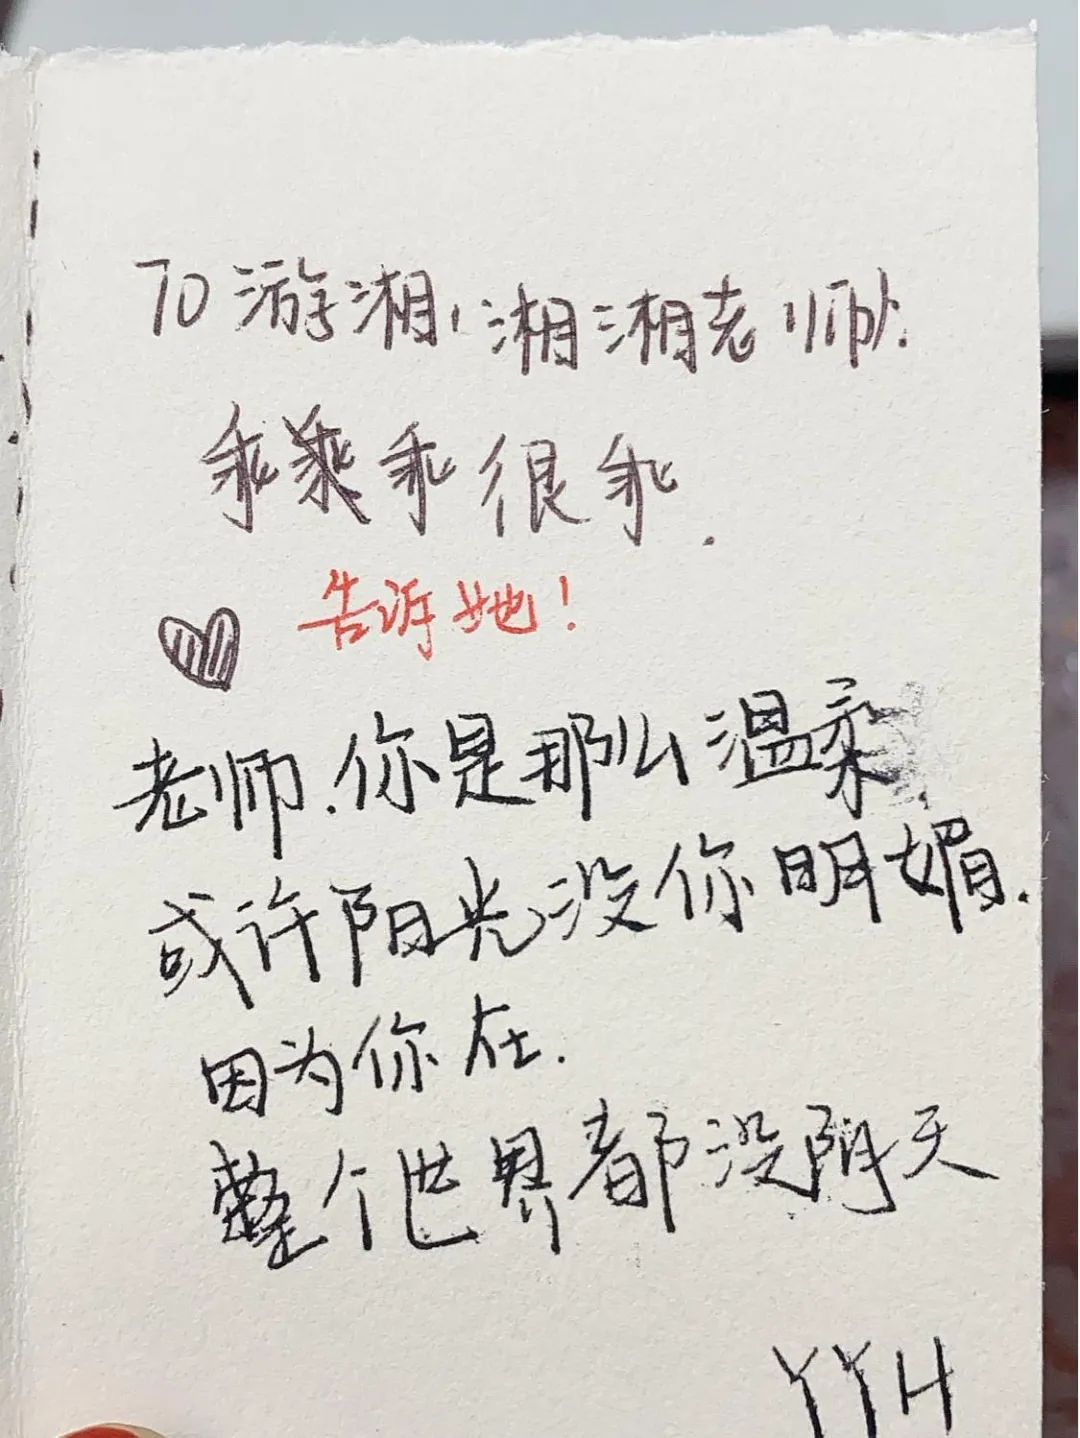 TO 游湘，湘湘老师.
乖乖乖很乖.
告诉她！
老师.你是那么温柔
或许阳光没你明媚.
因为你在.
整个世界都没阴天
丫丫H